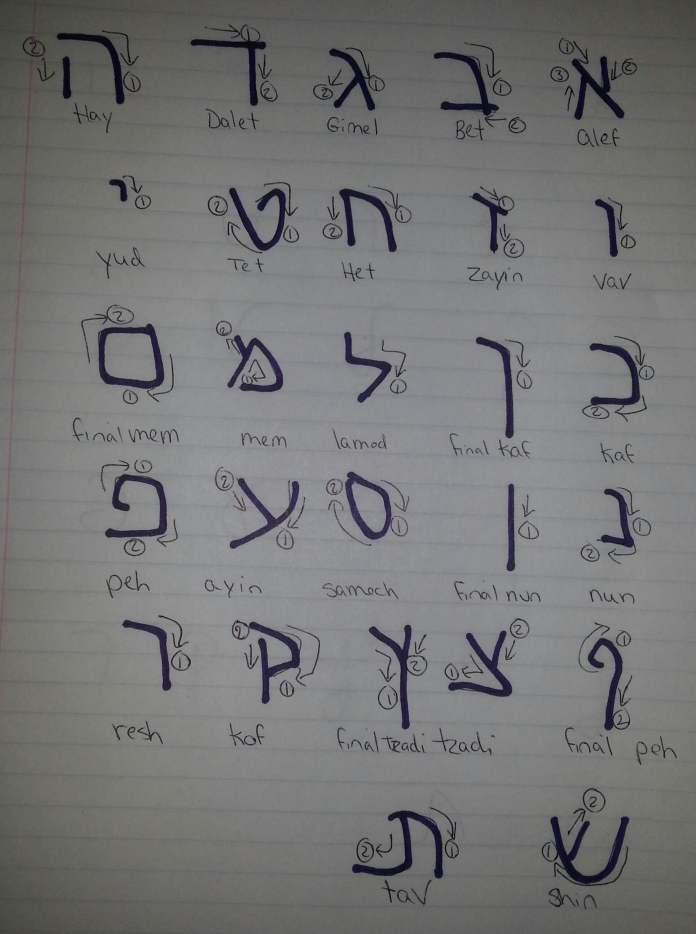 א ב ג ד ה
Hay Dalet Gimel Bet alef
ו ז ח ט י
yud Tet Het Zayin vav
כ ך ל מ ם
final mem mem lamed final kaf kaf
נ ן ס ע פ
peh ayin samech final nun nun
ף צ ץ ק ר
resh kof final tzadi tzadi final peh
ש ת
tav Shin